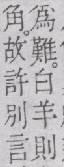 爲難。白羊則
角。故許別言